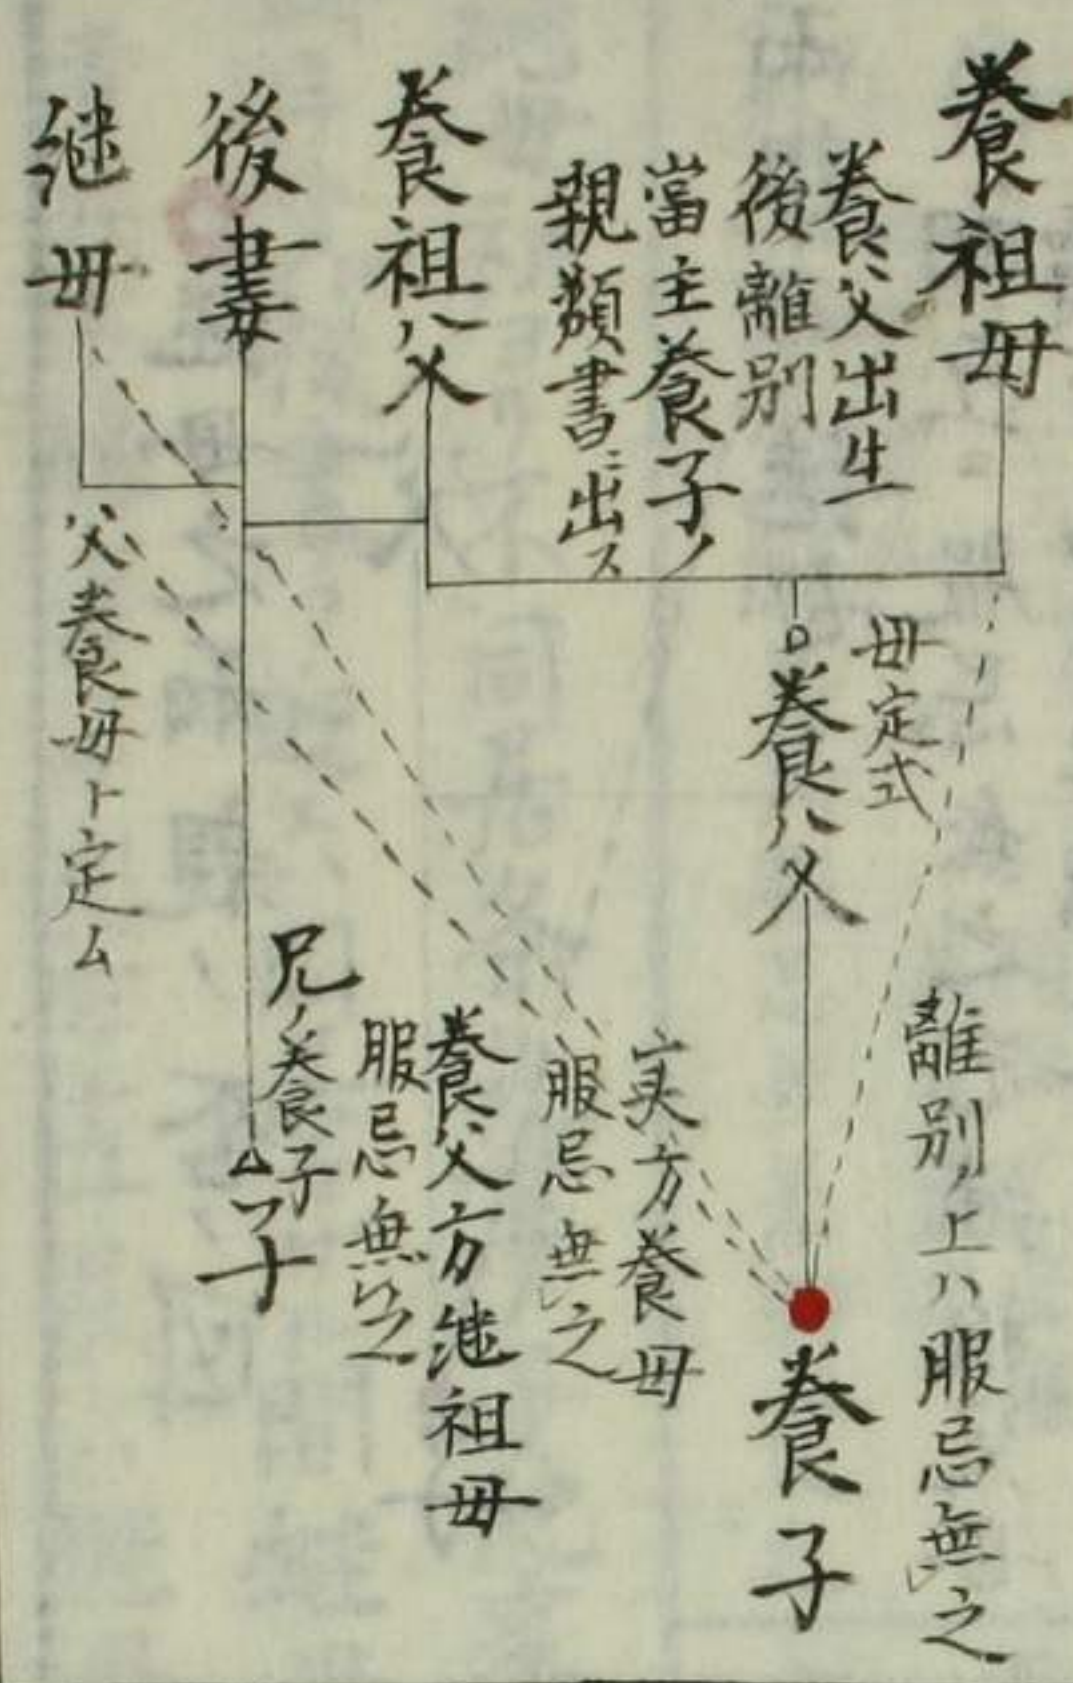 養祖母
養父出生
後離別
當主養子ノ
親類書ニ出ス
養祖父
後妻
継母
母定式
養父
父養母ト定ム
離別ノ上ハ服忌無之
養子
実方養母
服忌無之
養父方継祖母
服忌無之
兄ノ養子
子